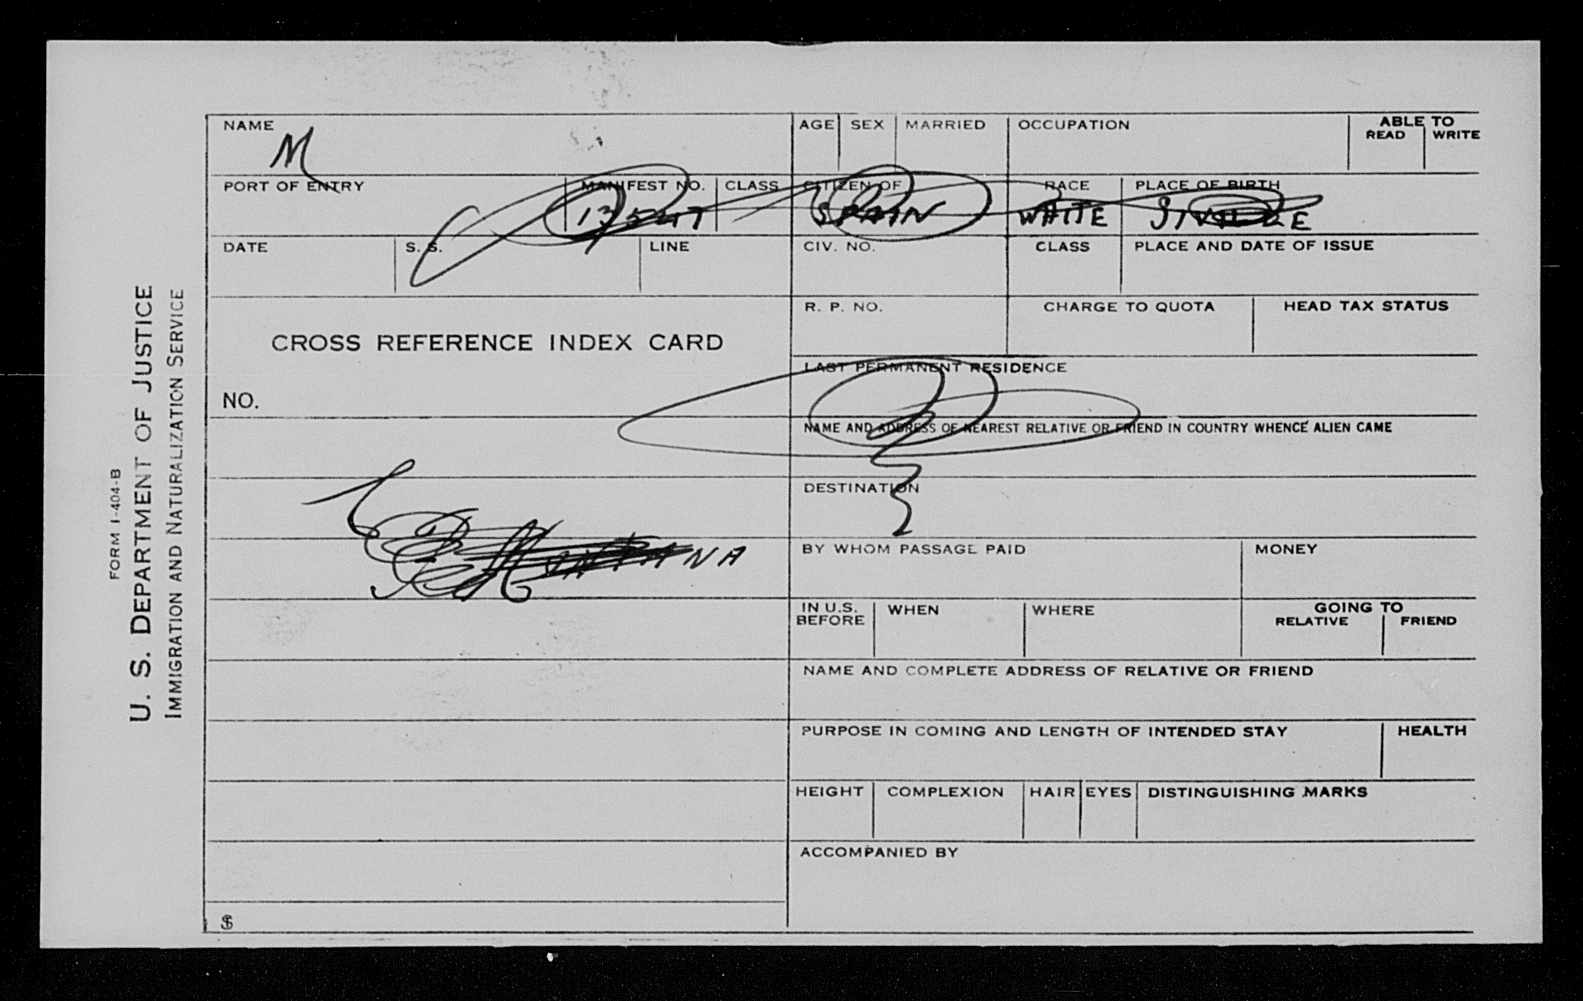 NAME
M
AGE SEX MARRIED OCCUPATION ABLE TO
READ WRITE
PORT OF ENTRY MANIFEST NO. CLASS CITIZEN OF RACE PLACE OF BIRTH
SPAIN WHITE
DATE S. S. LINE CIV. NO. CLASS PLACE AND DATE OF ISSUE
R. P. NO. CHARGE TO QUOTA HEAD TAX STATUS
CROSS REFERENCE INDEX CARD
LAST PERMANENT RESIDENCE
NO.
NAME AND ADDRESS OF NEAREST RELATIVE OR FRIEND IN COUNTRY WHENCE ALIEN CAME
DESTINATION
BY WHOM PASSAGE PAID MONEY
IN U.S. BEFORE WHEN WHERE GOING TO
RELATIVE FRIEND
NAME AND COMPLETE ADDRESS OF RELATIVE OR FRIEND
PURPOSE IN COMING AND LENGTH OF INTENDED STAY HEALTH
HEIGHT COMPLEXION HAIR EYES DISTINGUISHING MARKS
ACCOMPANIED BY
$
FORM I-404-B
U. S. DEPARTMENT OF JUSTICE
IMMIGRATION AND NATURALIZATION SERVICE